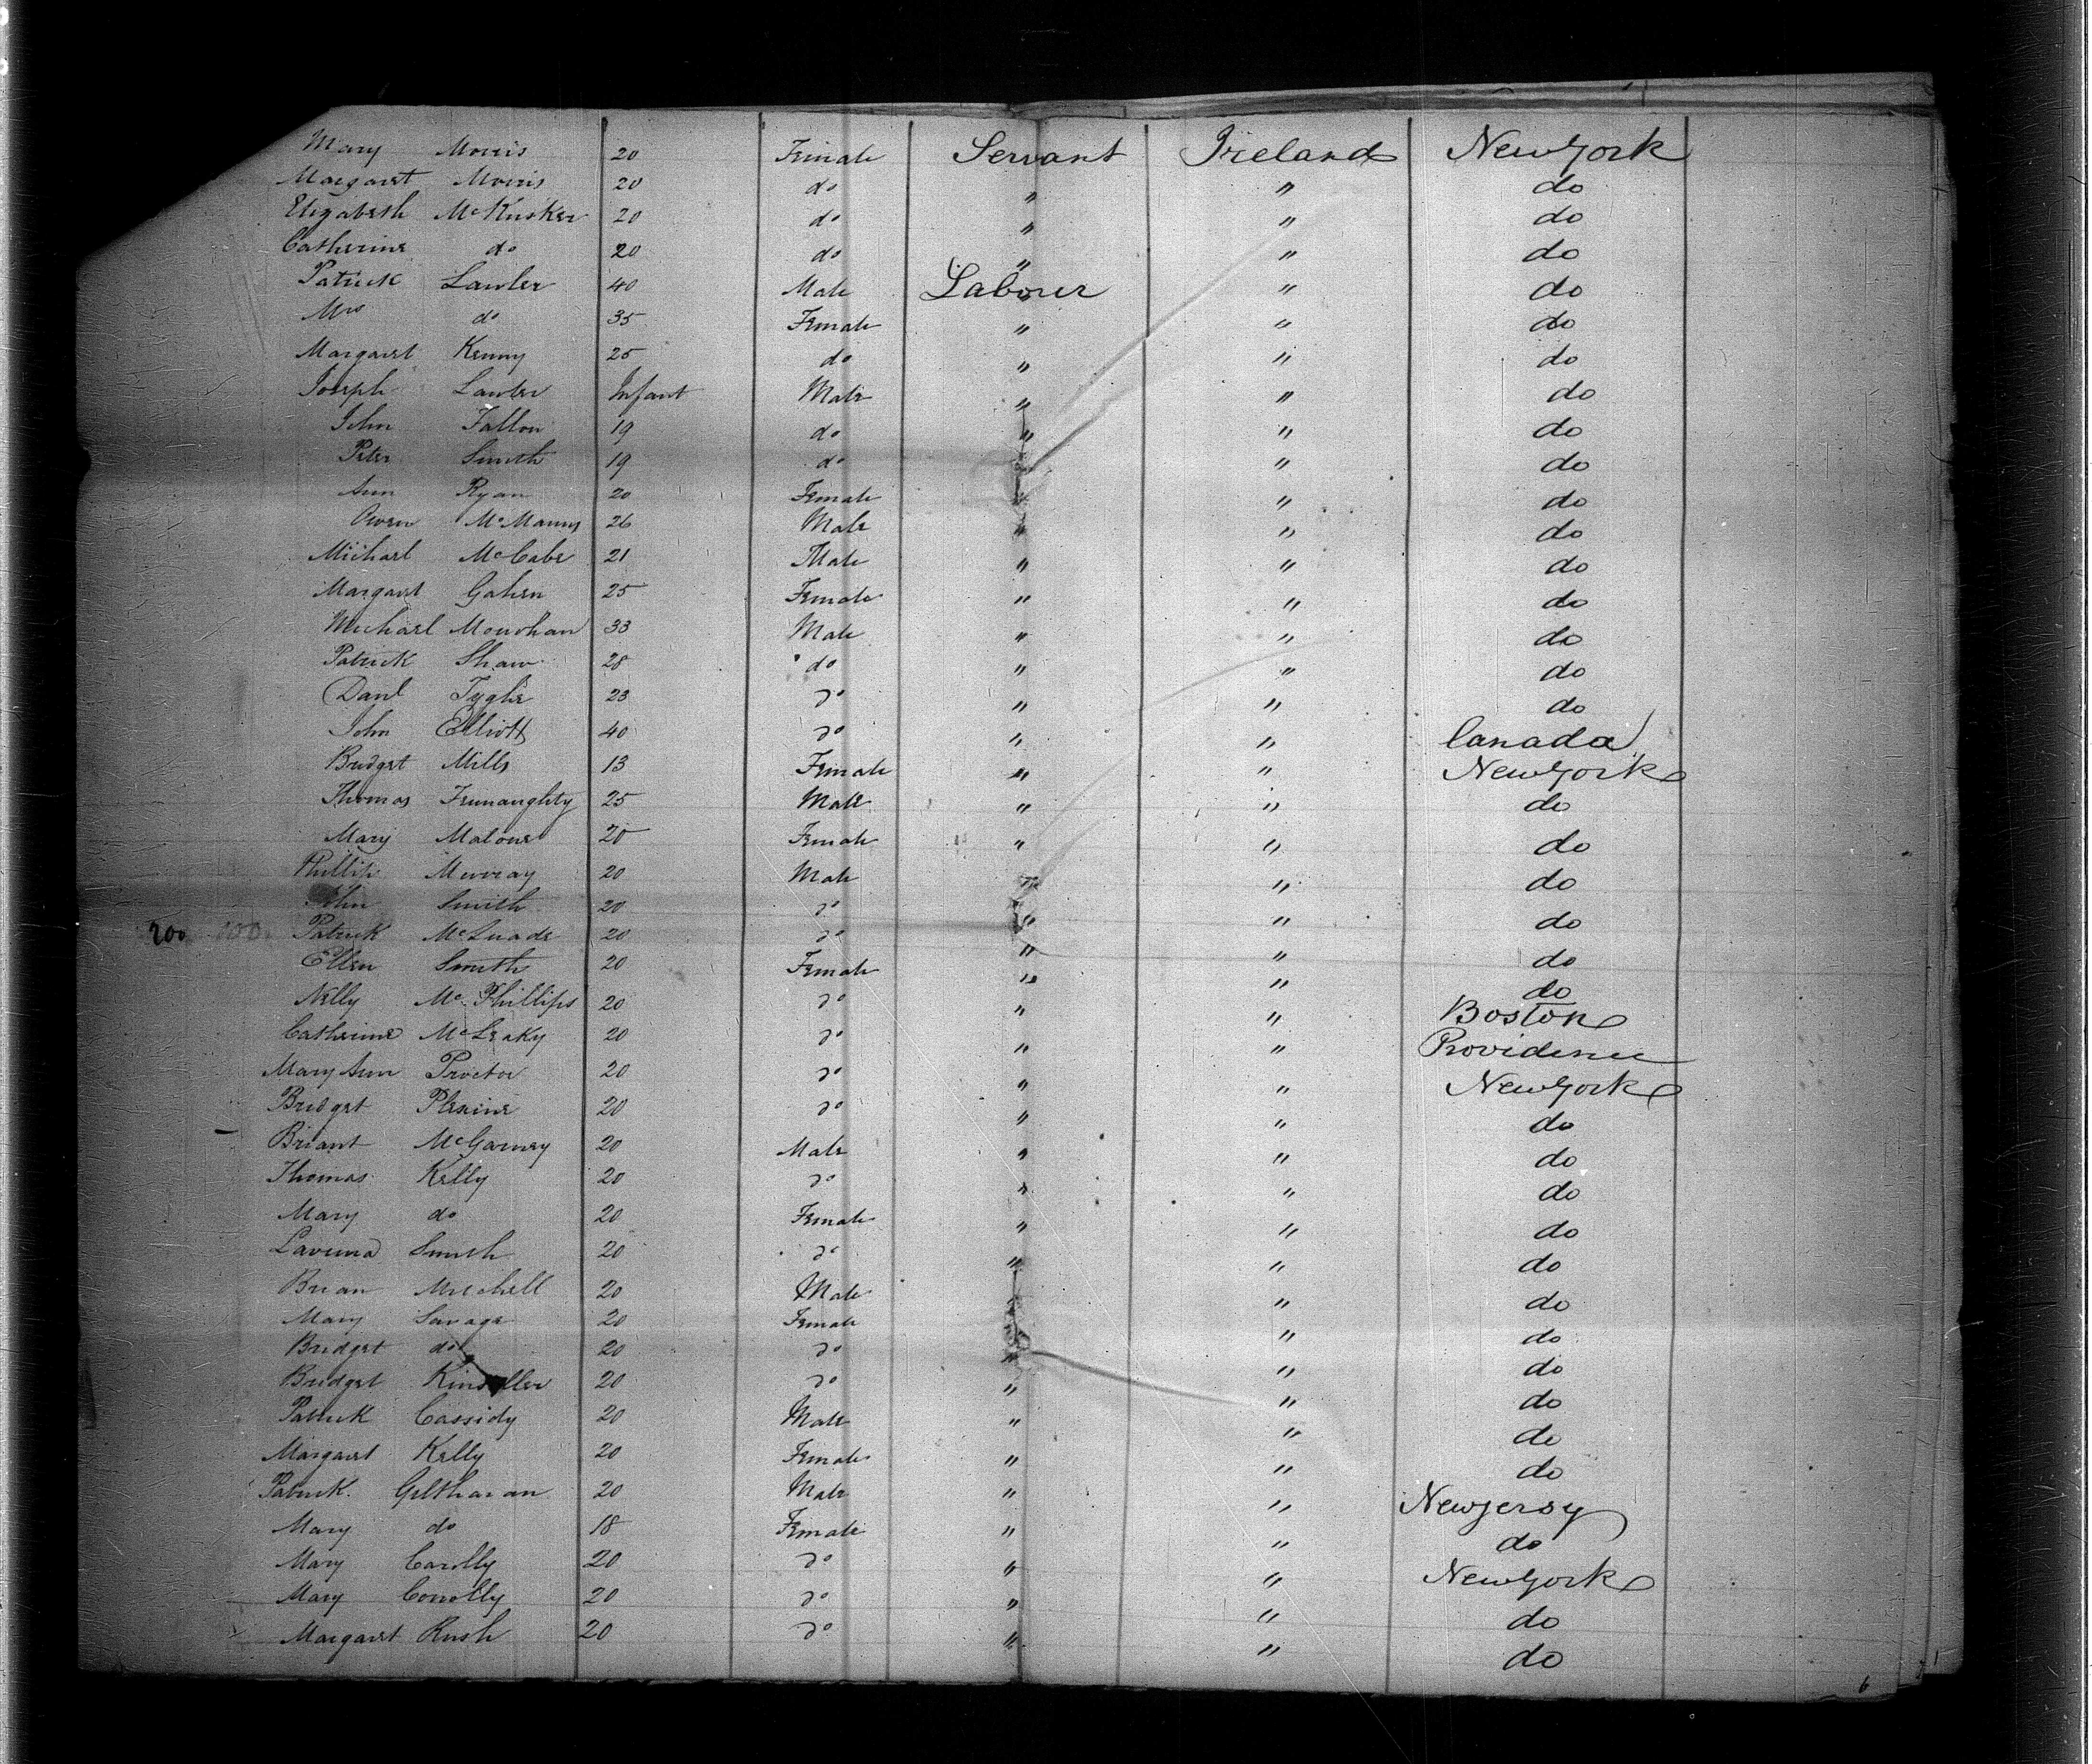 Mary Morris 20 Female Servant Ireland New York
Margaret Morris 20 do " " do
Elizabeth McKusker 20 do " " do
Catherine do 20 do " " do
Patrick Lawler 40 Male Labourer " do
Mrs do 35 Female " " do
Margaret Kenny 25 do " " do
Joseph Lawler Infant Male " " do
John Fallon 19 do " " do
Peter Smith 19 do " " do
Ann Ryan 20 Female " " do
Owen McManus 26 Male " " do
Michael McCabe 21 Male " " do
Margaret Gahen 25 Female " " do
Michael 33 Male " " do
Patrick Shaw 28 do " " do
Danl 23 do " " do
John Elliott 40 do " " Canada
Bridget Mills 13 Female " " New York
Thomas 25 Male " " do
Mary Malone 20 Female " " do
Phillip Murray 20 Male " " do
John Smith 20 do " " do
200 200 Patrick McQuade 20 do " " do
Ellen Smith 20 Female " " do
Nelly McPhillips 20 do " " Boston
Catherine McLeaky 20 do " " Providence
Mary Ann Proctor 20 do " " New York
Bridget 20 do " " do
Briant McGarney 20 Male " " do
Thomas Kelly 20 do " " do
Mary do 20 Female " " do
Lavinia Smith 20 do " " do
Brian Mitchell 20 Male " " do
Mary Savage 20 Female " " do
Bridget do 20 do " " do
Bridget Kinseller 20 do " " do
Patrick Cassidy 20 Male " " do
Margaret Kelly 20 Female " " do
Patrick 20 Male " " New Jersey
Mary do 18 Female " " do
Mary Carolly 20 do " " New York
Mary Conolly 20 do " " do
Margaret Rush 20 do " " do
6